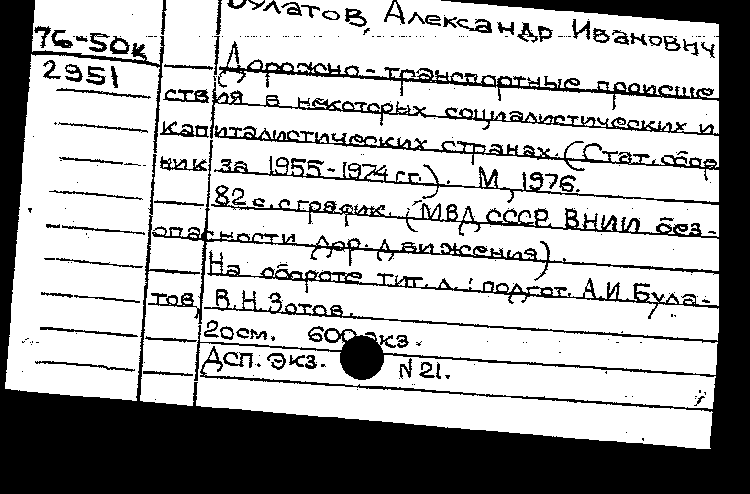 Булатов, Александр Иванович
76-50к
2951
Дорожно-транспортные происше
ствия в некоторых социалистических и
капиталистических странах. (Стат. сбор
ник за 1955-1974 гг.). М., 1976.
82 с. с график. (МВД СССР. ВНИИ без-
опасности дор. движения).
На обороте тит. л.: подгот. А.И. Була-
тов, В.Н. Зотов.
20см. 600 экз.
ДСП. Экз. N 21.